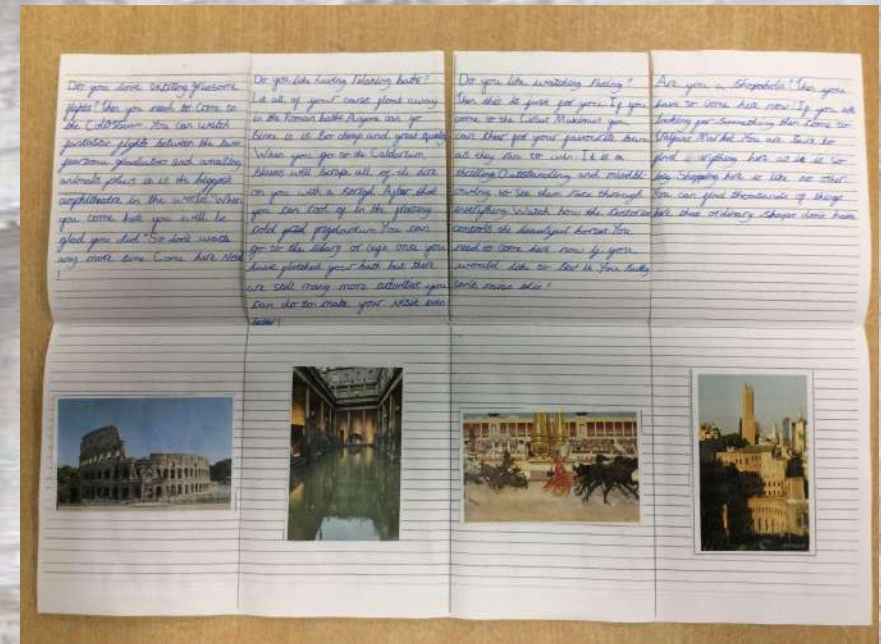 Do you love exciting gruesome
fights? Then you need to Come to
the Colosseum. You can watch
fantastic fights between the two
fearsome gladiators and amazing
animals plus is it the biggest
amphitheatre in the world. When
you come here you will be
glad you did. So don't waste
any more time Come here Now
!
Do you like having relaxing baths?
Let all of your cares float away
in the Roman baths Anyone can go
Since it is so cheap and great quality
When you go to the Caldarium
Slaves will Scrape all of the dirt
on you with a After that
you can Cool of in the freezing
cold frigidarium You can
go to the library or cafe once you
have finished your bath but there
are still many more activities you
can do to make your visit even
better!
Do you like watching racing?
Then this is just for you. If you
come to the Circus Maximus you
can for your favourite team
as they race to win. It is a
thrilling Outstanding and
to See them race through
everything Watch how the
controls the beautiful horses You
need to come here now if you
would like to You
can't miss this!
Are you a Shopaholic? Then you
have to come here now! If you are
looking for Something then come to
Market You are Sure to
find anything here as it is so
big Shopping here is like no other
You can find of things
here that ordinary Shops don't have